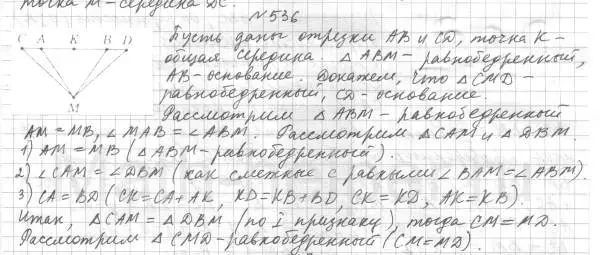 точка М - середина DC.
№536
C A K B D
M
Пусть даны отрезки AB и CD, точка K -
общая середина. △ABM - равнобедренный,
AB - основание. Докажем, что △CMD -
равнобедренный, CD - основание.
Рассмотрим △ABM - равнобедренный
AM = MB, ∠MAB = ∠ABM. Рассмотрим △CAM и △DBM.
1) AM = MB (△ABM - равнобедренный).
2) ∠CAM = ∠DBM (как смежные с равными ∠BAM = ∠ABM).
3) CA = BD (CK = CA + AK, KD = KB + BD, CK = KD, AK = KB).
Итак, △CAM = △DBM (по I признаку), тогда CM = MD.
Рассмотрим △CMD - равнобедренный (CM = MD).